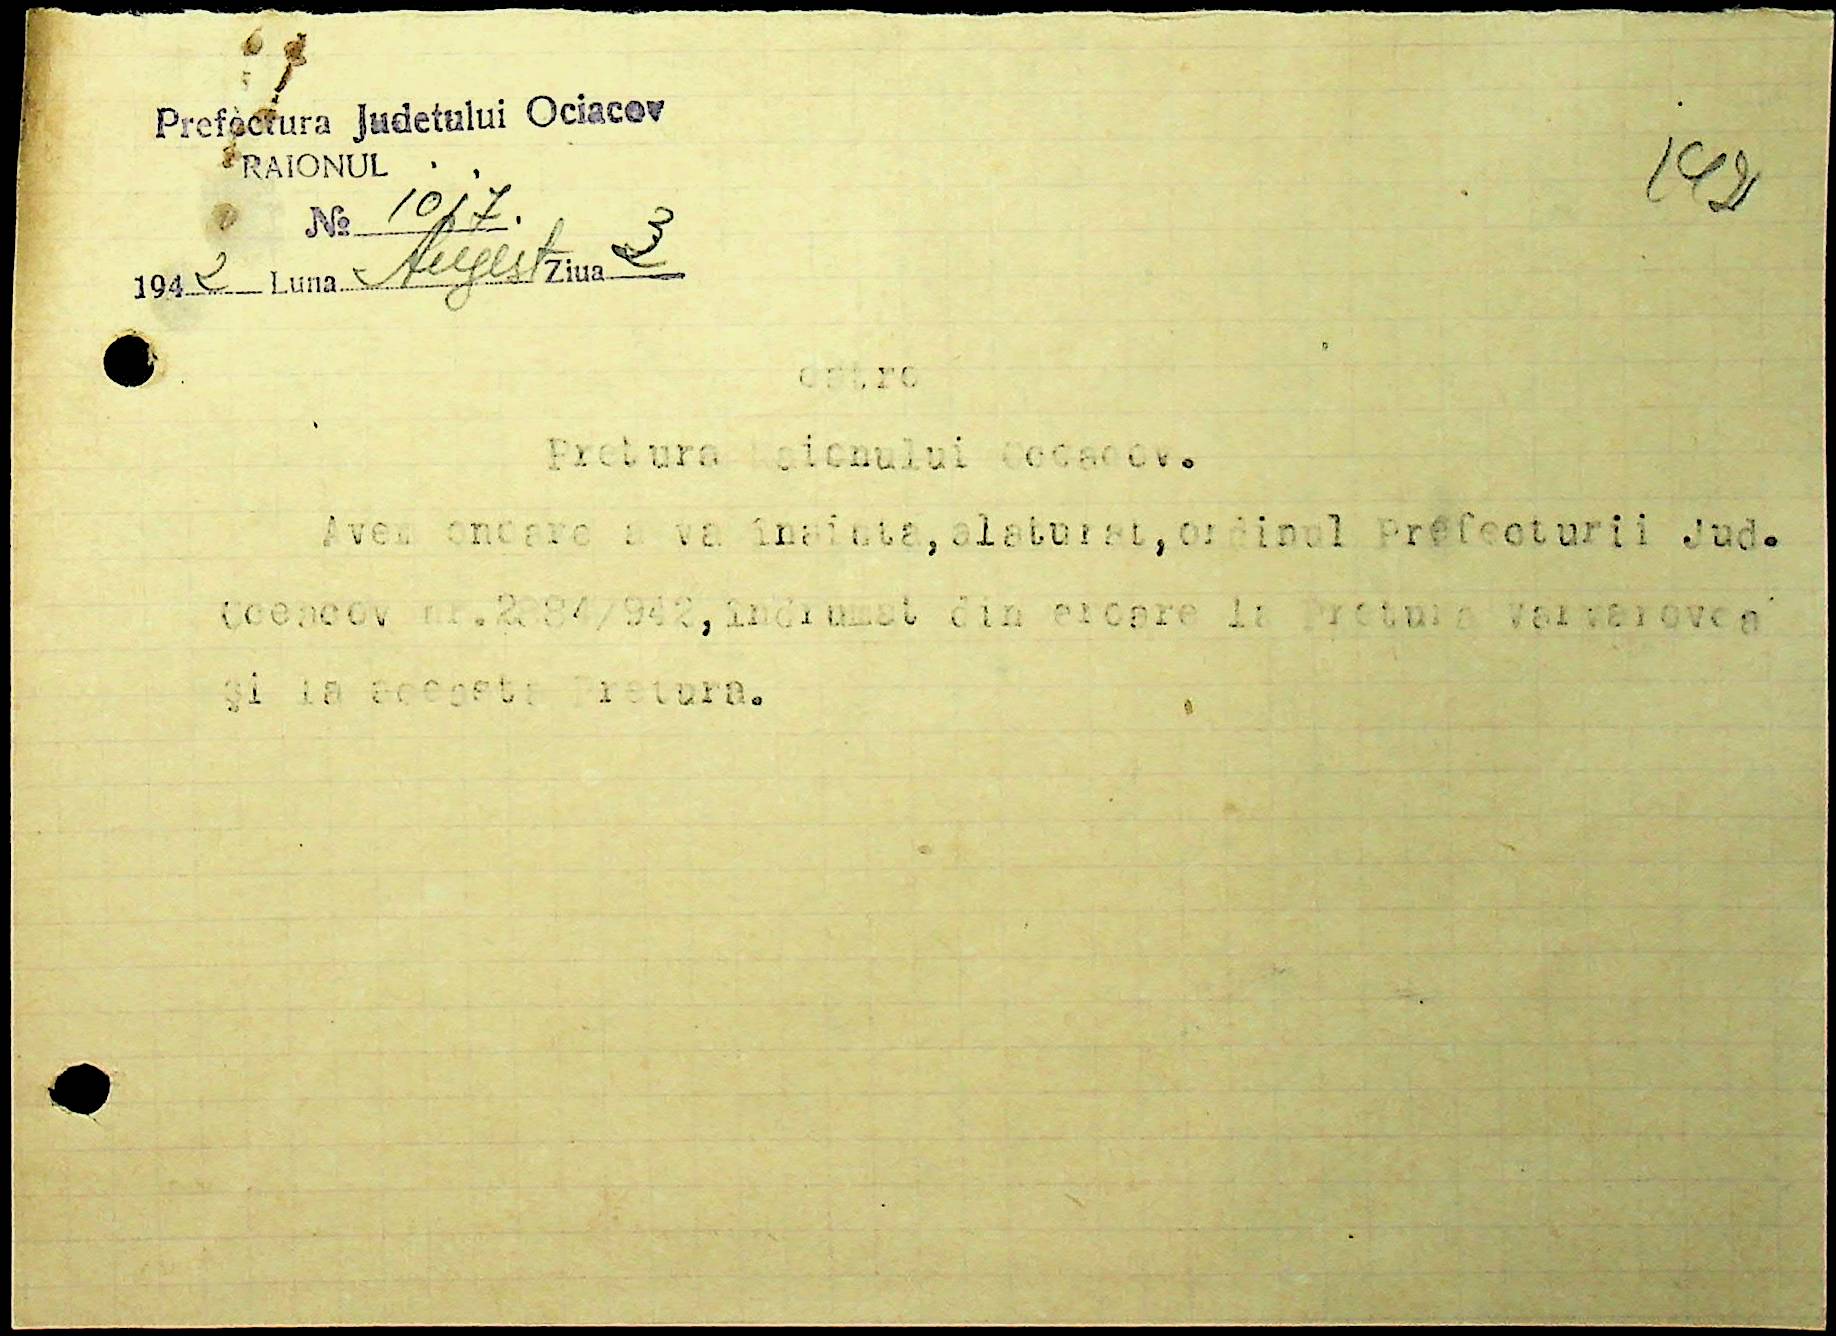 Prefectura Judetului Ociacov
RAIONUL
142
№ 1017.
1942 Luna August Ziua 3
catre
Pretura Raionului Oceacov.
Avem onoare a va înainta, alaturat, ordinul Prefecturii Jud.
Oceacov nr.2884/942, îndrumat din eroare la Pretura Varvarovca
și la aceasta Pretura.